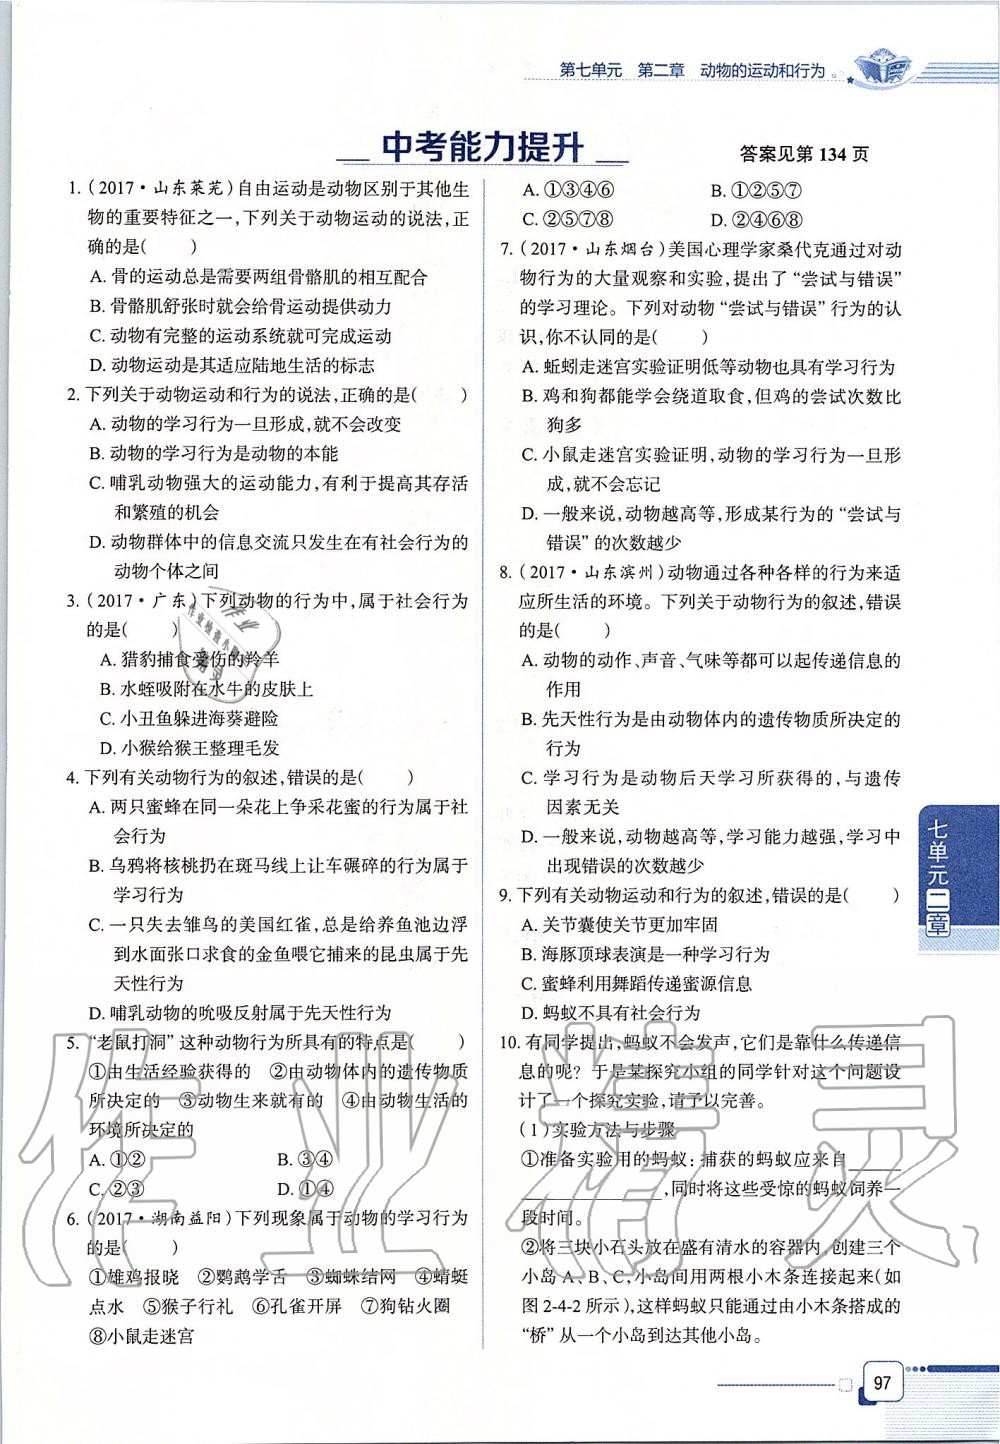 第七单元 第二章 动物的运动和行为
中考能力提升
答案见第 134 页
1. (2017·山东莱芜)自由运动是动物区别于其他生
物的重要特征之一,下列关于动物运动的说法,正
确的是( )
A. 骨的运动总是需要两组骨骼肌的相互配合
B. 骨骼肌舒张时就会给骨运动提供动力
C. 动物有完整的运动系统就可完成运动
D. 动物运动是其适应陆地生活的标志
2. 下列关于动物运动和行为的说法,正确的是( )
A. 动物的学习行为一旦形成,就不会改变
B. 动物的学习行为是动物的本能
C. 哺乳动物强大的运动能力,有利于提高其存活
和繁殖的机会
D. 动物群体中的信息交流只发生在有社会行为的
动物个体之间
3. (2017·广东)下列动物的行为中,属于社会行为
的是( )
A. 猎豹捕食受伤的羚羊
B. 水蛭吸附在水牛的皮肤上
C. 小丑鱼躲进海葵避险
D. 小猴给猴王整理毛发
4. 下列有关动物行为的叙述,错误的是( )
A. 两只蜜蜂在同一朵花上争采花蜜的行为属于社
会行为
B. 乌鸦将核桃扔在斑马线上让车碾碎的行为属于
学习行为
C. 一只失去雏鸟的美国红雀,总是给养鱼池边浮
到水面张口求食的金鱼喂它捕来的昆虫属于先
天性行为
D. 哺乳动物的吮吸反射属于先天性行为
5. “老鼠打洞”这种动物行为所具有的特点是( )
①由生活经验获得的 ②由动物体内的遗传物质
所决定的 ③动物生来就有的 ④由动物生活的
环境所决定的
A. ①② B. ③④
C. ②③ D. ①④
6. (2017·湖南益阳)下列现象属于动物的学习行为
的是( )
①雄鸡报晓 ②鹦鹉学舌 ③蜘蛛结网 ④蜻蜓
点水 ⑤猴子行礼 ⑥孔雀开屏 ⑦狗钻火圈
⑧小鼠走迷宫
A. ①③④⑥ B. ①②⑤⑦
C. ②⑤⑦⑧ D. ②④⑥⑧
7. (2017·山东烟台)美国心理学家桑代克通过对动
物行为的大量观察和实验,提出了“尝试与错误”
的学习理论。下列对动物“尝试与错误”行为的认
识,你不认同的是( )
A. 蚯蚓走迷宫实验证明低等动物也具有学习行为
B. 鸡和狗都能学会绕道取食,但鸡的尝试次数比
狗多
C. 小鼠走迷宫实验证明,动物的学习行为一旦形
成,就不会忘记
D. 一般来说,动物越高等,形成某行为的“尝试与
错误”的次数越少
8. (2017·山东滨州)动物通过各种各样的行为来适
应所生活的环境。下列关于动物行为的叙述,错误
的是( )
A. 动物的动作、声音、气味等都可以起传递信息的
作用
B. 先天性行为是由动物体内的遗传物质所决定的
行为
C. 学习行为是动物后天学习所获得的,与遗传
因素无关
D. 一般来说,动物越高等,学习能力越强,学习中
出现错误的次数越少
9. 下列有关动物运动和行为的叙述,错误的是( )
A. 关节囊使关节更加牢固
B. 海豚顶球表演是一种学习行为
C. 蜜蜂利用舞蹈传递蜜源信息
D. 蚂蚁不具有社会行为
10. 有同学提出,蚂蚁不会发声,它们是靠什么传递信
息的呢? 于是某探究小组的同学针对这个问题设
计了一个探究实验,请予以完善。
(1)实验方法与步骤
①准备实验用的蚂蚁:捕获的蚂蚁应来自______
______________,同时将这些受惊的蚂蚁饲养一
段时间。
②将三块小石头放在盛有清水的容器内,创建三个
小岛 A、B、C,小岛间用两根小木条连接起来(如
图 2-4-2 所示),这样蚂蚁只能通过由小木条搭成的
“桥”从一个小岛到达其他小岛。
七单元二章
97
作业精灵